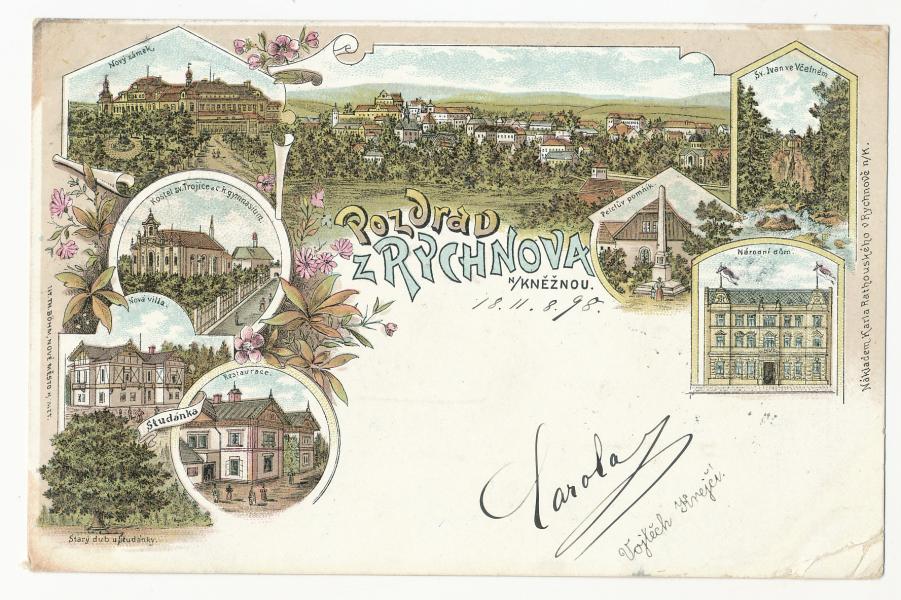 Nový zámek.
Sv. Ivan ve Včelném.
Kostel sv. Trojice a c.k. gymnasium.
Pelclův pomník.
Pozdrav
z RYCHNOVA
n/KNĚŽNOU.
18.11.8.98.
Národní dům.
Nová villa.
Restaurace.
Studánka
Starý dub u Studánky.
LIT. TH. BÖHM, NOVÉ MĚSTO N. MET.
Nákladem Karla Rathouského v Rychnově n/K.
Karola
Vojtěch Krejčí.